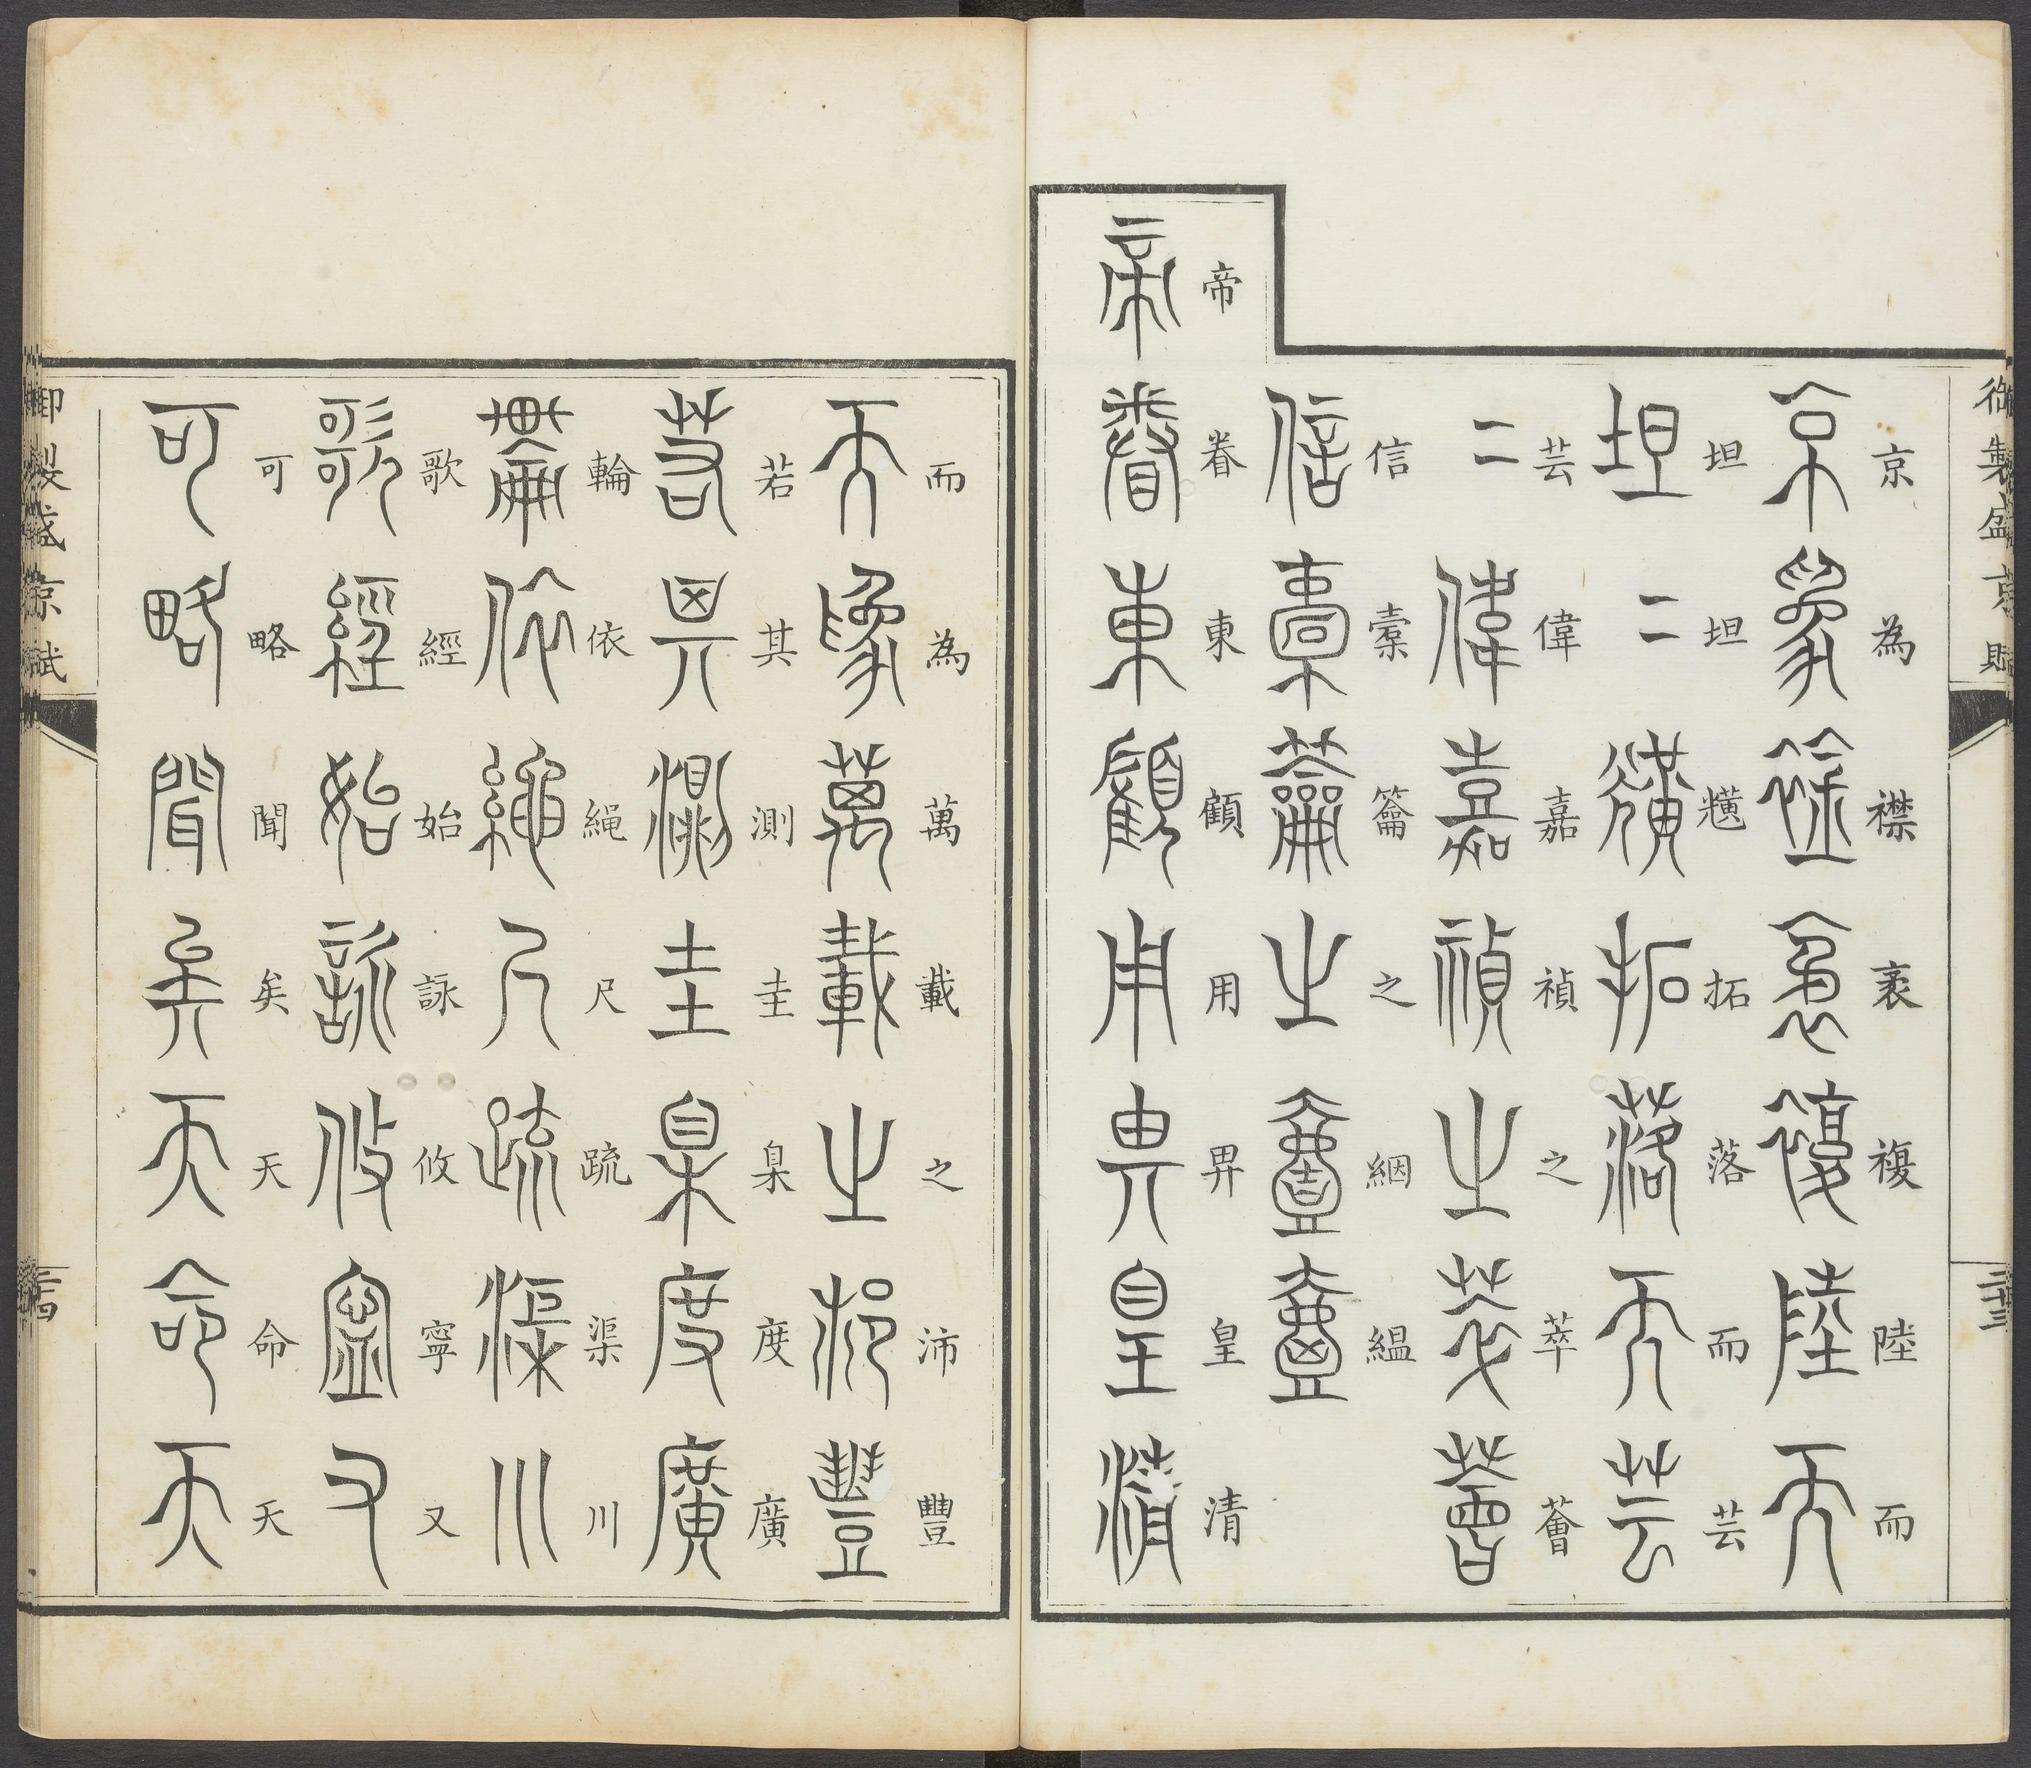 御製盛京賦
二十三
京為襟袤複陸而
京為襟袤複陸而
坦坦拓落而芸
坦二拓落而芸
芸偉嘉禎之萃薈
二偉嘉禎之萃薈
信橐籥之絪縕
信橐籥之壹壺
帝眷東顧用畀皇清
帝眷東顧用畀皇清
而為萬載之沛豐
而為萬載之沛豐
若其測圭臬度廣
若其測圭臬度廣
輪依繩尺疏渠川
輪依繩尺疏渠川
歌經始詠攸寧又
歌經始詠攸寧又
可略聞矣天命天
可略聞矣天命天
御製盛京賦
二十四